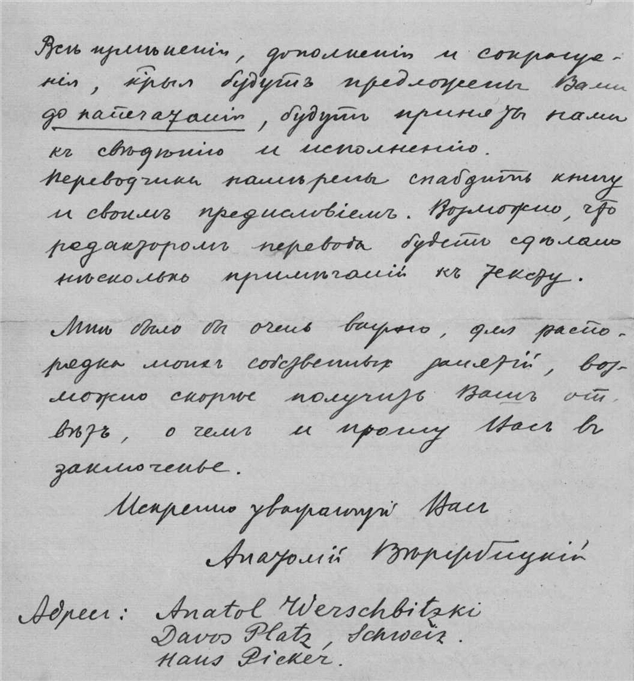 Всѣ измѣненія, дополненія и сокраще-
нія, кзрыя будутъ предложены Вами
до напечатанія, будутъ приняты нами
къ свѣдѣнію и исполненію.
Переводчики намѣрены снабдить книгу
и своимъ предисловіемъ. Возможно, что
редакторомъ перевода будетъ сдѣлано
нѣсколько примѣчаній къ тексту.
Мнѣ было бы очень важно, для распо-
рядка моихъ собственныхъ занятій, воз-
можно скорѣе получить Вашъ от-
вѣтъ, о чемъ и прошу Васъ въ
заключенье.
Искренно уважающій Васъ
Анатолій
Адресъ: Anatol Werschbitzki
Davos Platz, Schweiz.
Haus Picker.